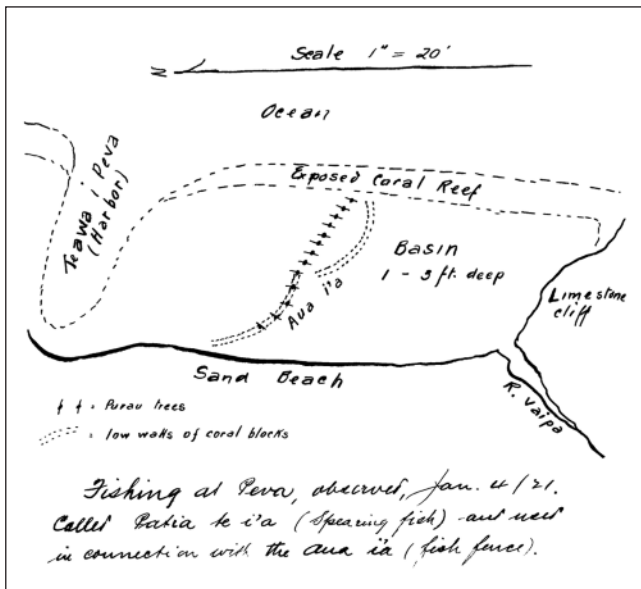 Scale 1" = 20'
N
Ocean
Exposed Coral Reef
Teawa i Peva
(Harbor)
Basin
1 - 3 ft. deep
Aua i'a
Limestone
cliff
Sand Beach
R. Vaipa
= Purau trees
= low walls of coral blocks
Fishing at Peva, observed, Jan. 4/21.
Called Patia te i'a (Spearing fish) and used
in connection with the aua ia (fish fence).